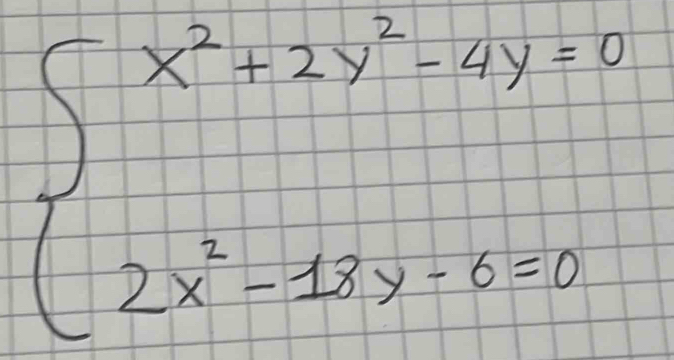 x² + 2y² - 4y = 0
2x² - 18y - 6 = 0